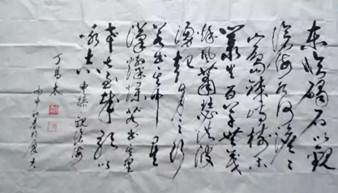 東臨碣石以觀
滄海水何澹澹
山島竦峙樹木
叢生百草豐茂
秋風蕭瑟洪波
湧起日月之行
若出其中星
漢燦爛若出其里
幸甚至哉歌以
咏志 曹操 觀滄海